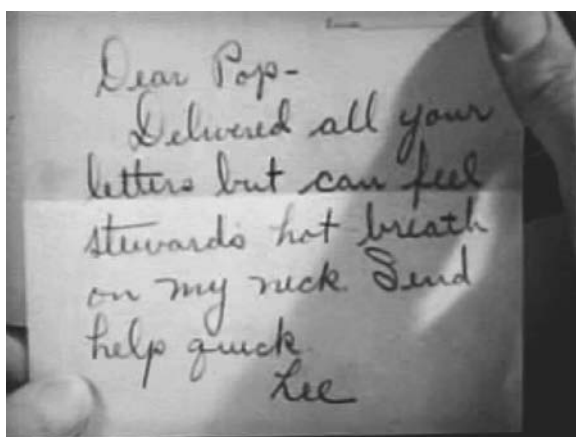 Dear Pop-
Delivered all your
letters but can feel
stewards hot breath
on my neck. Send
help quick.
Lee